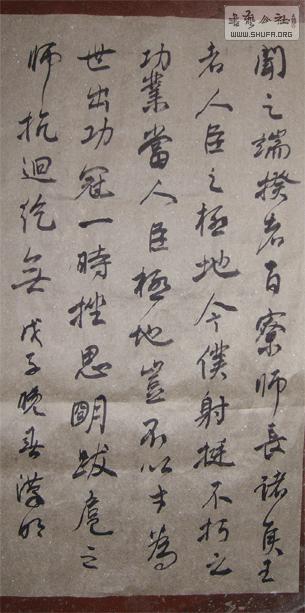 書藝公社
WWW.SHUFA.ORG
聞之端揆者百寮師長諸侯王
者人臣之極地今僕射挺不朽之
功業當人臣極地豈不以才為
世出功冠一時挫思明跋扈之
師抗迴紇無 戊子晚春